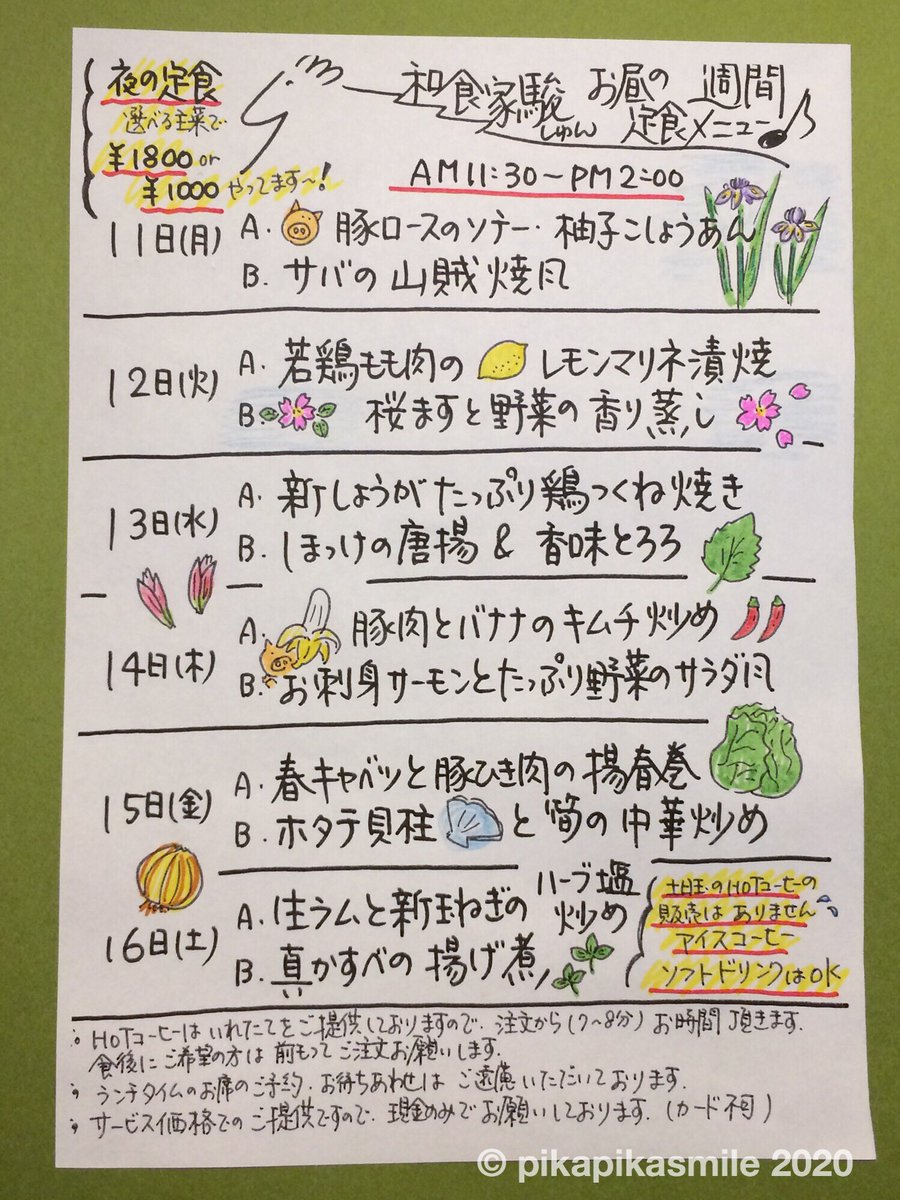 夜の定食
選べる主菜で
¥1800 or
¥1000 やってます〜!
和食家駿 お昼の 週間
しゅん 定食メニュー
AM11:30〜PM2:00
11日(月) A. 豚ロースのソテー・柚子こしょうあん
B. サバの山賊焼風
12日(火) A. 若鶏もも肉の レモンマリネ漬焼
B. 桜ますと野菜の香り蒸し
13日(水) A. 新しょうがたっぷり鶏つくね焼き
B. ほっけの唐揚 & 香味とろろ
14日(木) A. 豚肉とバナナのキムチ炒め
B. お刺身サーモンとたっぷり野菜のサラダ風
15日(金) A. 春キャベツと豚ひき肉の揚春巻
B. ホタテ貝柱 と筍の中華炒め
16日(土) A. 生ラムと新玉ねぎの ハーブ塩
炒め
B. 真かすべの揚げ煮
土日のHOTコーヒーの
販売はありません
アイスコーヒー
ソフトドリンクはOK
。HOTコーヒーはいれたてをご提供しておりますので、注文から(7〜8分)お時間頂きます。
食後にご希望の方は前もってご注文お願いします。
。ランチタイムのお席のご予約、お待ちあわせはご遠慮いただいております。
。サービス価格でのご提供ですので、現金のみでお願いしております。(カード不可)
© pikapikasmile 2020